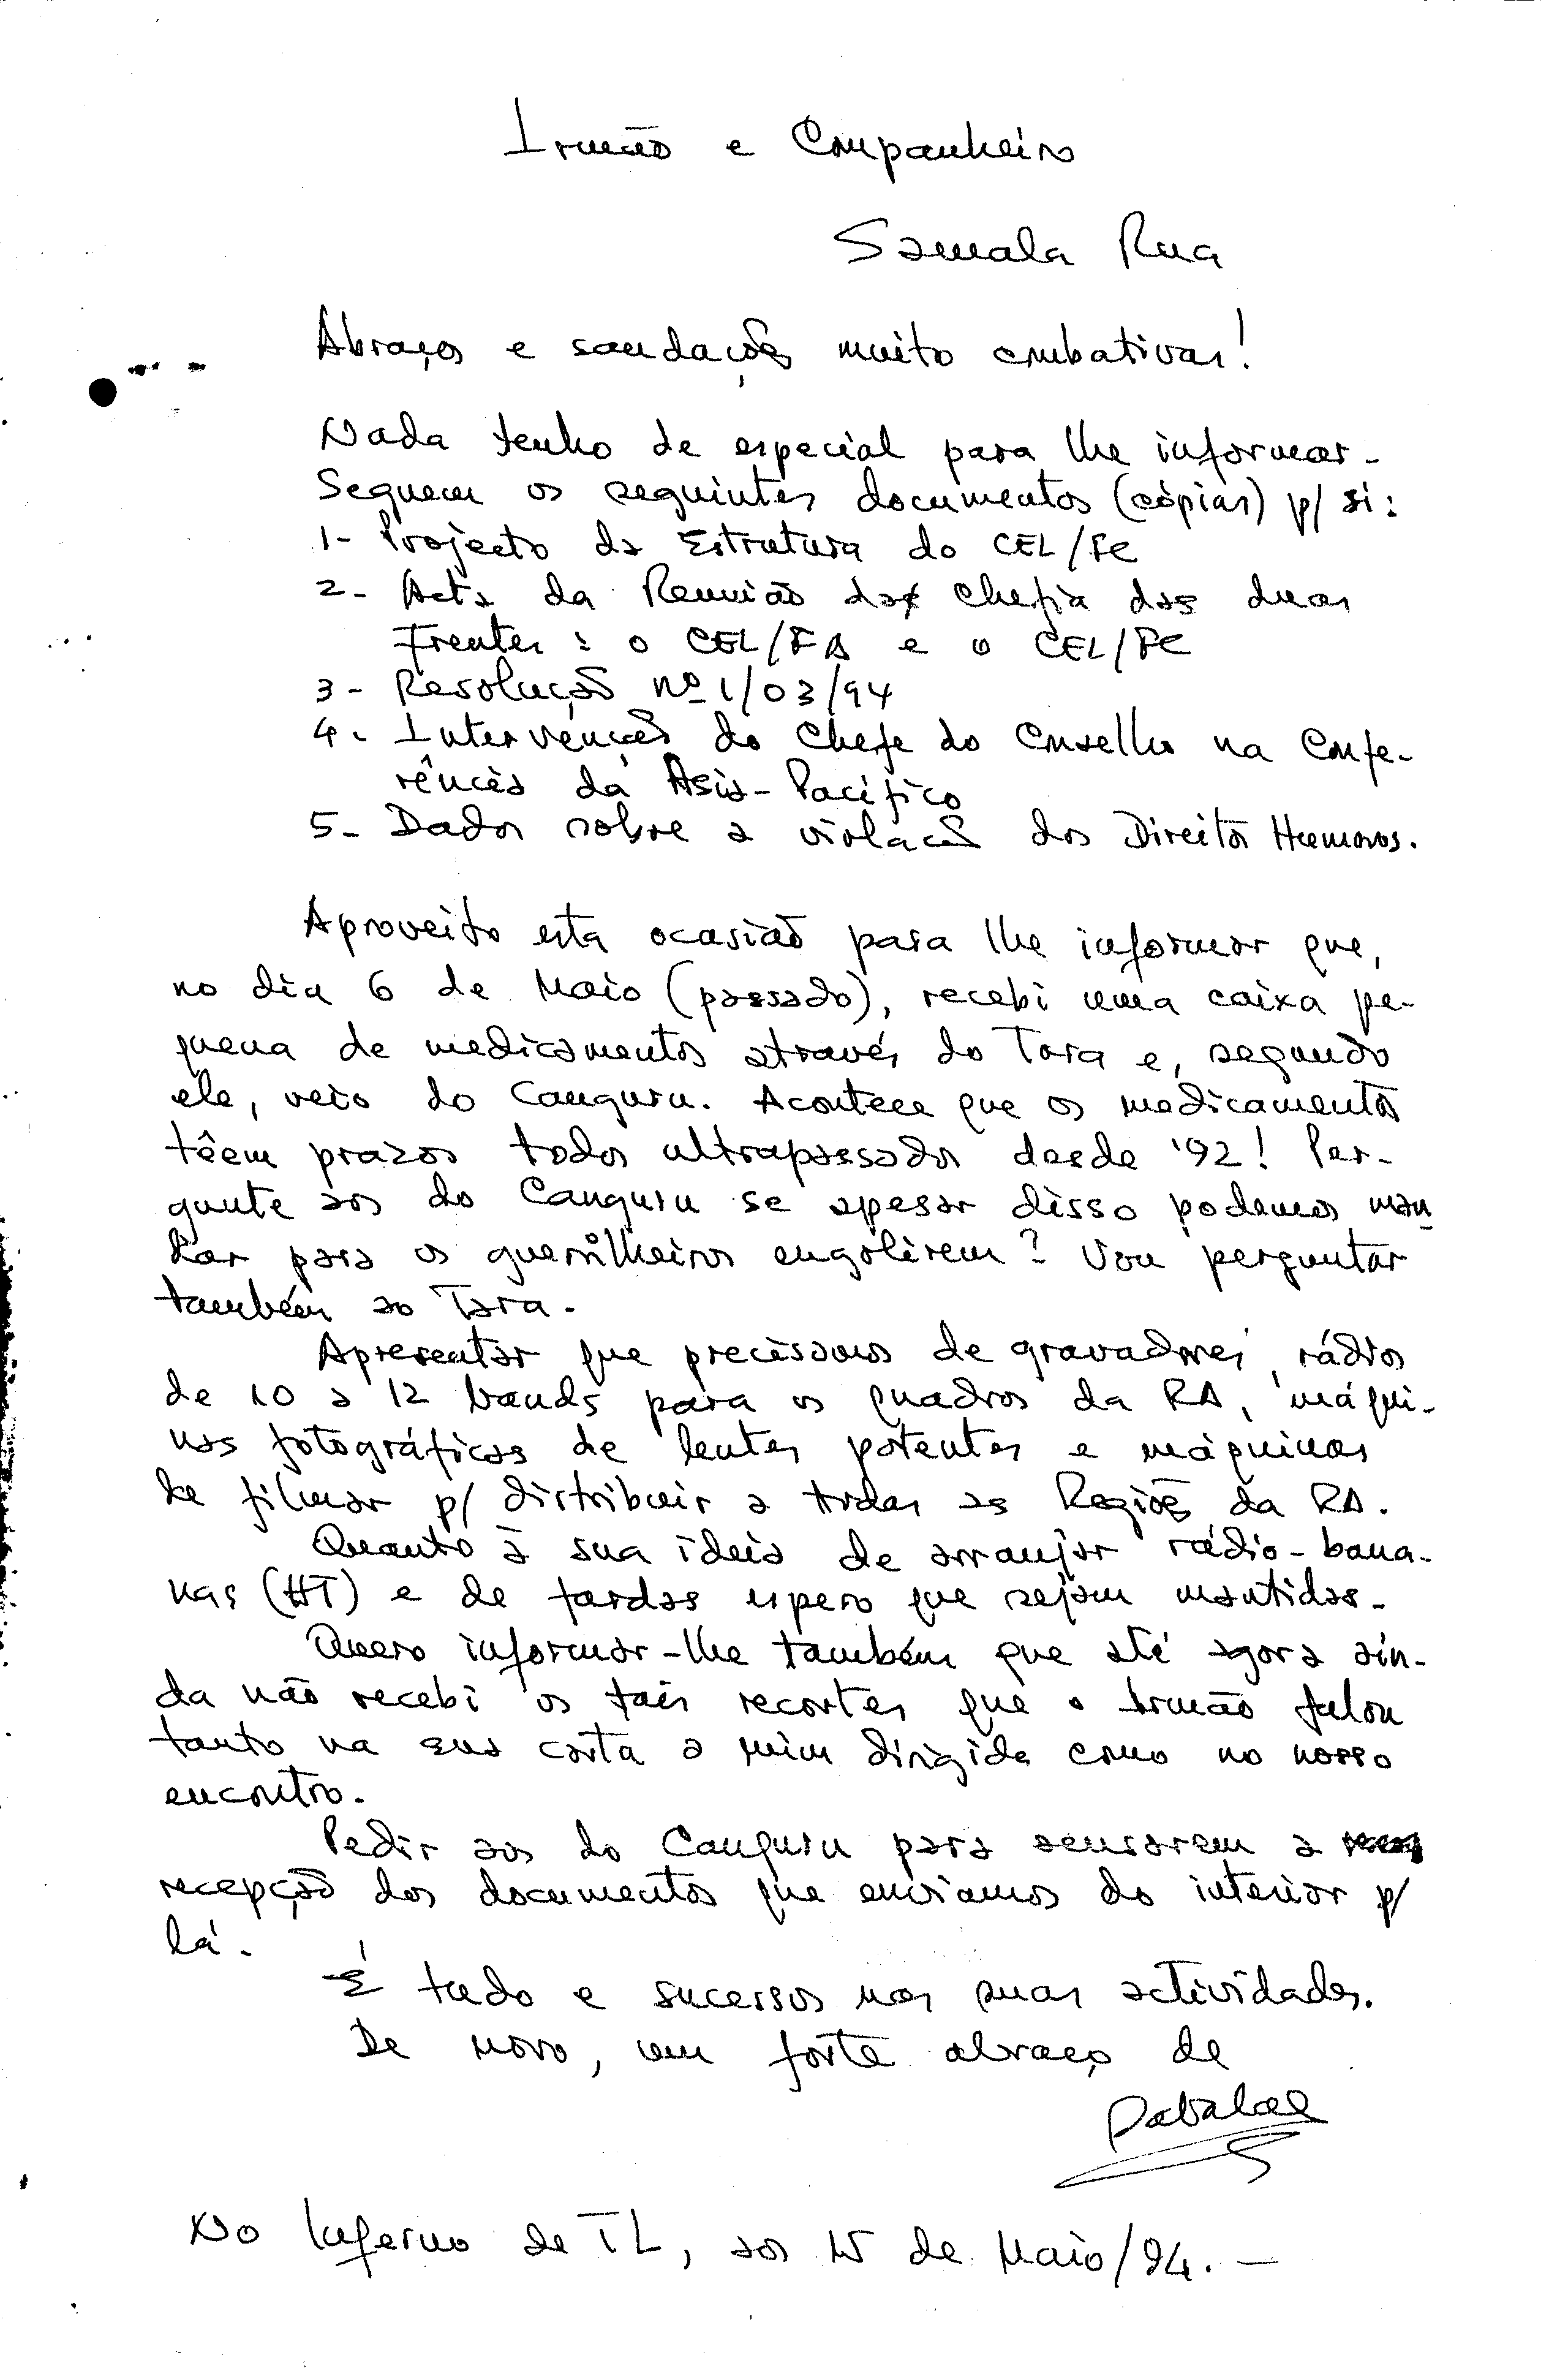 Irmão e Companheiro
Samala Rua
Abraços e saudações muito combativas!
Nada tenho de especial para lhe informar.
Seguem os seguintes documentos (cópias) p/ si:
1- Projecto da Estrutura do CEL/FC
2- Acta da Reunião da Chefia das duas
Frentes: o CEL/FA e o CEL/FC
3- Resolução nº 1/03/94
4. Intervenções do Chefe do Conselho na Confe-
rência da Ásia-Pacífico
5- Dados sobre a violação dos Direitos Humanos.
Aproveito esta ocasião para lhe informar que,
no dia 6 de Maio (passado), recebi uma caixa pe-
quena de medicamentos através do Tara e, segundo
ele, veio do Canguru. Acontece que os medicamentos
têem prazos todos ultrapassados desde '92! Per-
gunte aos do Canguru se apesar disso podemos man-
dar para os guerrilheiros engolirem? Vou perguntar
também ao Tara.
Apresentar que precisamos de gravadores, rádios
de 10 a 12 bands para os quadros da RA, máqui-
nas fotográficas de lentes potentes e máquinas
de filmar p/ distribuir a todas as Regiões da RA.
Quanto à sua ideia de arranjar rádio-bana-
nas (HT) e de fardas espero que sejam mantidas.
Quero informar-lhe também que até agora ain-
da não recebi os tais recortes que o Irmão falou
tanto na sua carta a mim dirigida como no nosso
encontro.
Pedir aos do Canguru para acusarem a
recepção dos documentos que enviamos do interior p/
lá.
É tudo e sucessos nas suas actividades.
De novo, um forte abraço de
No Inferno de TL, aos 15 de Maio/94.-